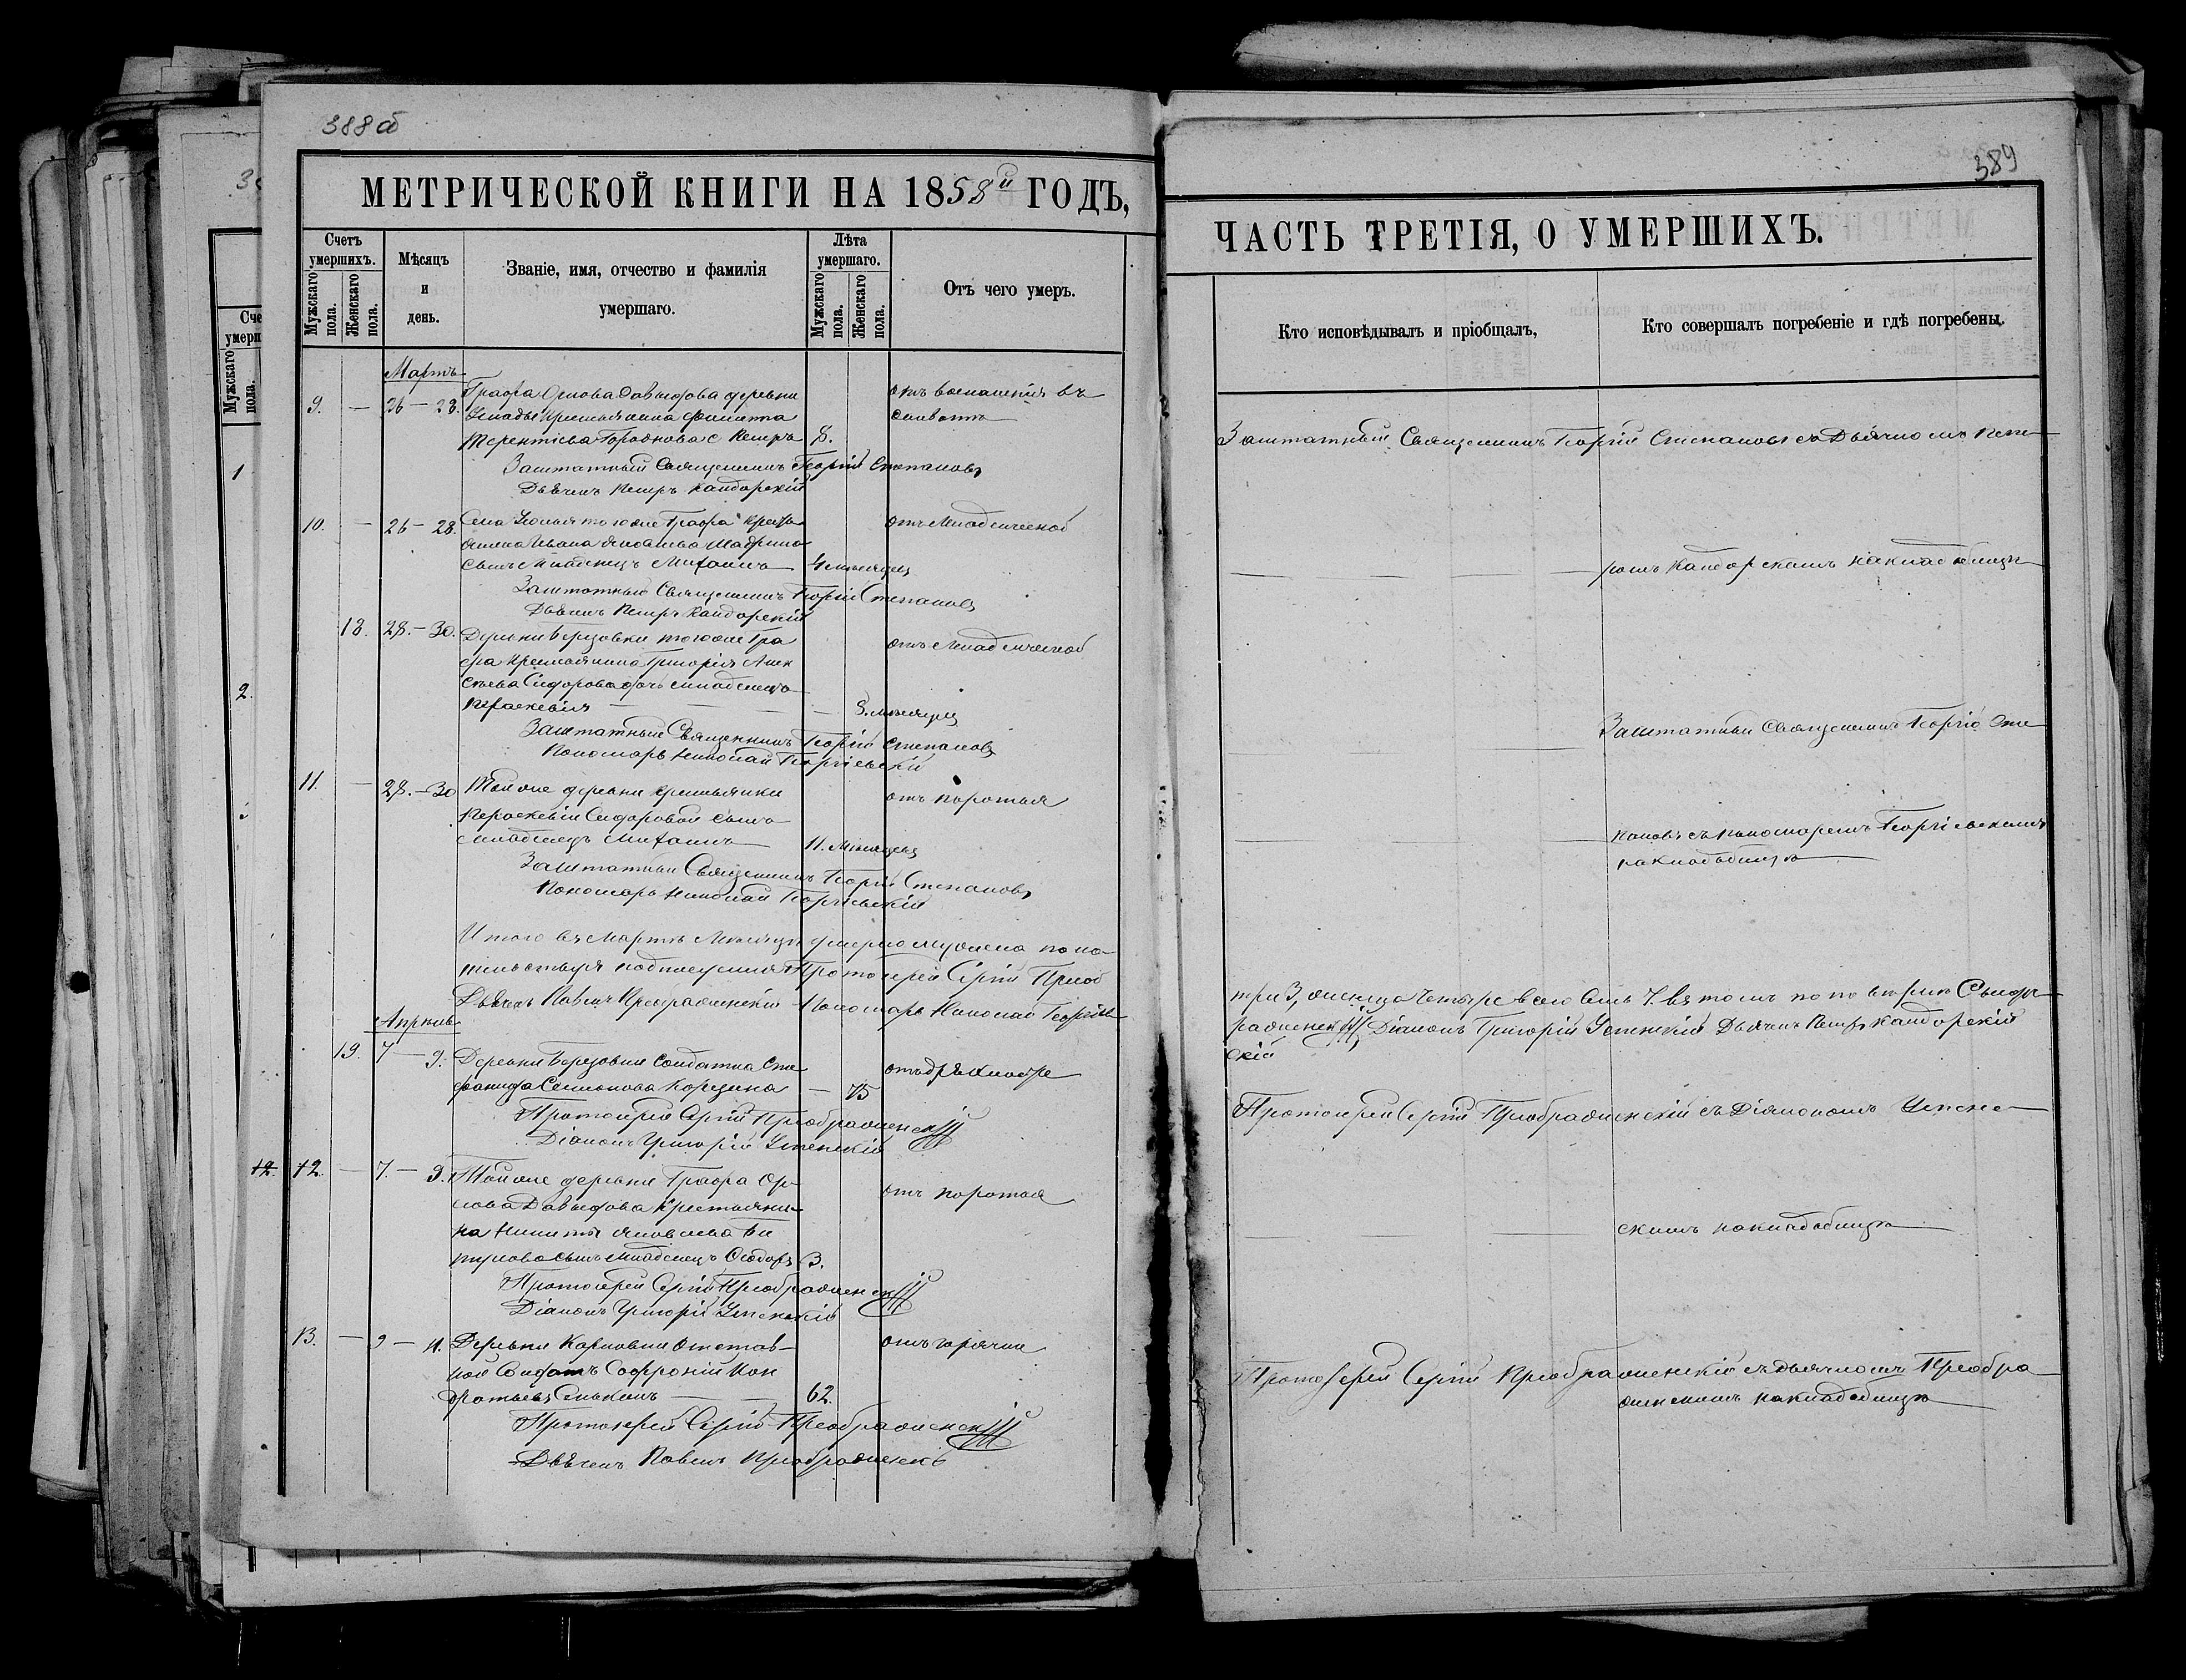 388 об
МЕТРИЧЕСКОЙ КНИГИ НА 1858й ГОДЪ,
Счетъ умершихъ.
Мужскаго пола.
Женскаго пола.
Мѣсяцъ и день.
Званіе, имя, отчество и фамилія умершаго.
Лѣта умершаго.
Мужскаго пола.
Женскаго пола.
Отъ чего умеръ.
Мартъ
9. — 26 — 28. Графа Орлова Давыдова деревни
крестьянина Филипа
Терентьева с Петръ 8.
отъ воспаленія въ
животѣ
Заштатный Священникъ Георгій Степановъ
Дьячекъ Петръ Кандорскій
10. — 26 — 28. Села того же Графа крестья
нина Ивана Яковлева
сынъ младенецъ Михаилъ 4 месяцы
отъ младенческой
Заштатный Священникъ Георгій Степановъ
Дьячекъ Петръ Кандорскій
18. 28. — 30. Деревни Березовки того же Гра
фа крестьянина Григорія Алек
сѣева Сидорова дочь младенецъ
Параскевія — — — — месяцы
отъ младенческой
Заштатный Священникъ Георгій Степановъ
Пономарь Николай Георгіевскій
11. — 28. — 30 Той же деревни крестьянки
Параскевіи Сидоровой сынъ
младенецъ Михаилъ 11. месяцевъ
отъ
Заштатный Священникъ Георгій Степановъ
Пономарь Николай Георгіевскій
Итого въ Мартѣ месяцѣ умерло мужеска пола
Протоіерей Сергій Преоб
Дьячекъ Павелъ Преображенскій Пономарь Николай Георгіев
Апрѣль
19. 7 — 9. Деревни Березовки солдатка Сте
фанида Семенова — 75
отъ дряхлости
Протоіерей Сергій Преображенскій
Діаконъ Григорій Успенскій
12. 12. — 7. — 9. Той же деревни Графа Ор-
лова Давыдова крестьяни-
на Никиты Яковлева
сынъ младенецъ Ѳеодоръ 3.
отъ
Протоіерей Сергій Преображенскій
Діаконъ Григорій Успенскій
13. — 9 — 11. Деревни Карповки отстав-
ной солдатъ Софроній Кон
дратьевъ — — 62.
отъ горячки
Протоіерей Сергій Преображенскій
Дьячекъ Павелъ Преображенскій
389
ЧАСТЬ ТРЕТІЯ, О УМЕРШИХЪ.
Кто исповѣдывалъ и пріобщалъ,
Кто совершалъ погребеніе и гдѣ погребены.
Заштатный Священникъ Георгій Степановъ съ Дьячкомъ Пет-
ромъ Кандорскимъ на кладбищѣ
Заштатный Священникъ Георгій Сте
пановъ съ пономаремъ Георгіевскимъ
на кладбищѣ
три 3, женска четыре всего семь 7. въ томъ
раженскій Діаконъ Григорій Успенскій Дьячекъ Петръ Кандорскій
скій
Протоіерей Сергій Преображенскій съ Діакономъ Успен-
скимъ на кладбищѣ
Протоіерей Сергій Преображенскій съ дьячкомъ Преобра
женскимъ на кладбищѣ